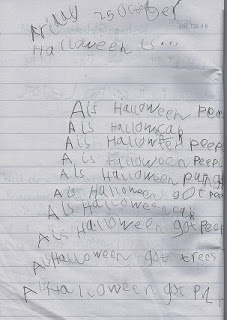 Friday 25 October
Halloween is...
A is Halloween peep
A is Hallowcap
A is Hallowter peep
A is Halloween peep
A is Hallowsen pump
A is Halloween got
A is Halloweencap
A is Halloween got peep
A is Halloween got trees
A is Halloween got